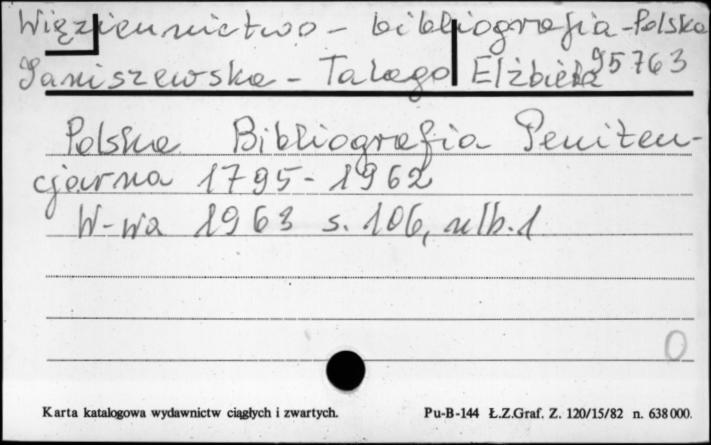 Więziennictwo - bibliografia - Polska
Janiszewska - Talago Elżbieta 95763
Polska Bibliografia Peniten-
cjarna 1795 - 1962
W-wa 1963 s. 106, nlb. 1
0
Karta katalogowa wydawnictw ciągłych i zwartych. Pu-B-144 Ł.Z.Graf. Z. 120/15/82 n. 638000.